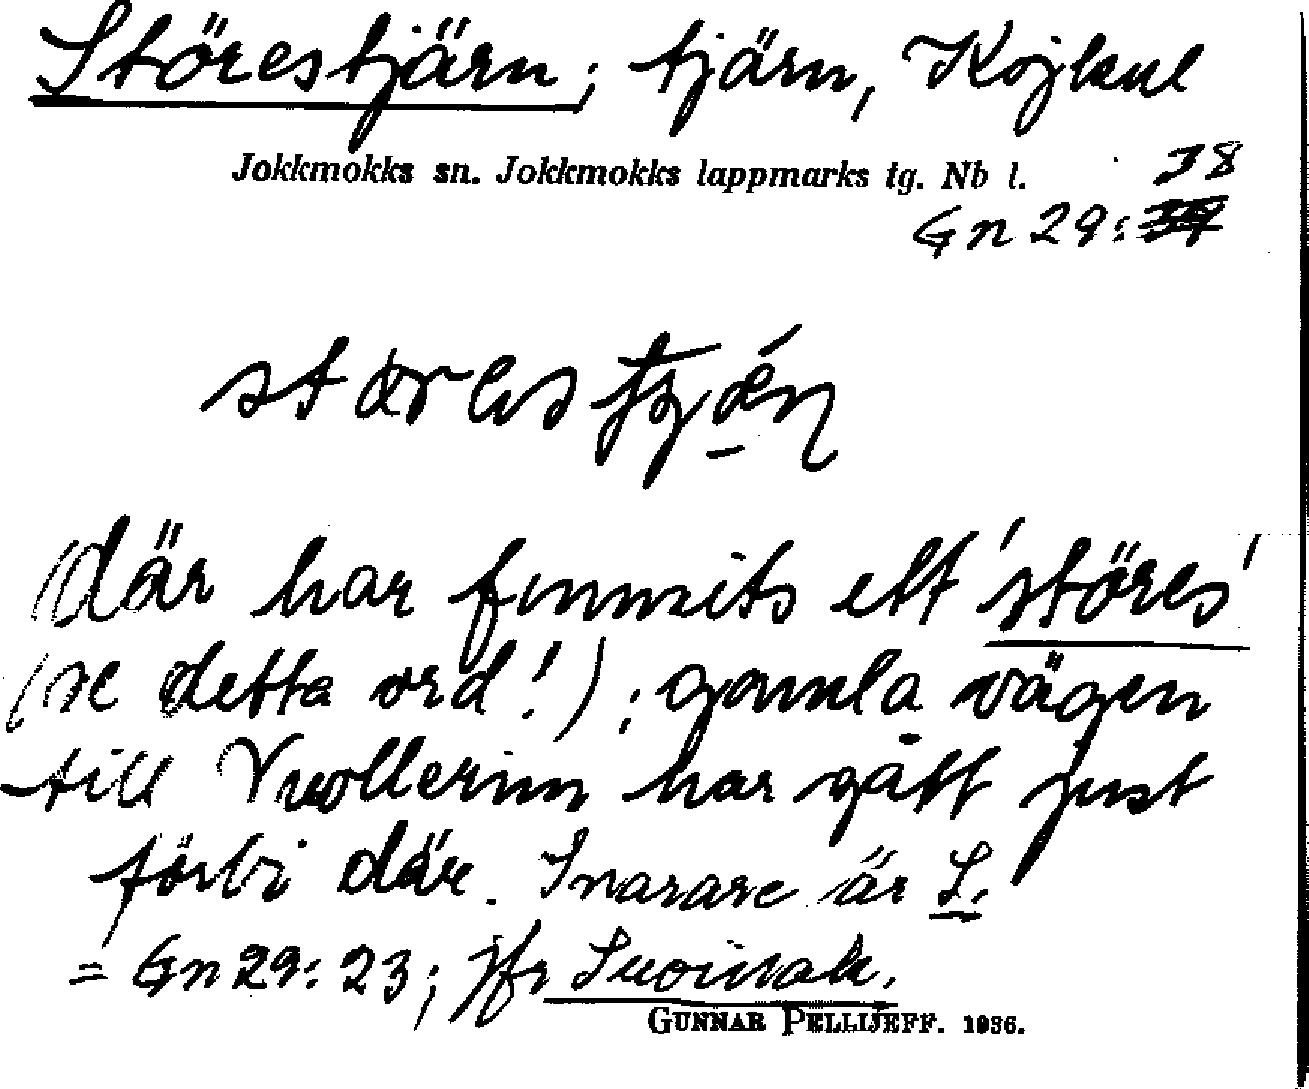 Störestjärn; tjärn, Kojkul
Jokkmokks sn. Jokkmokks lappmarks tg. Nb l.
38
Gn 29:
(där har funnits ett 'störes'
(se detta ord!); gamla vägen
till Vuollerim har gått just
förbi där. Snarare är S.
= Gn 29: 23; jfr
GUNNAR PELLIJEFF. 1936.